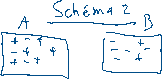 Schéma 2
A B
+ - + + - - +
- + + - -
+ - +